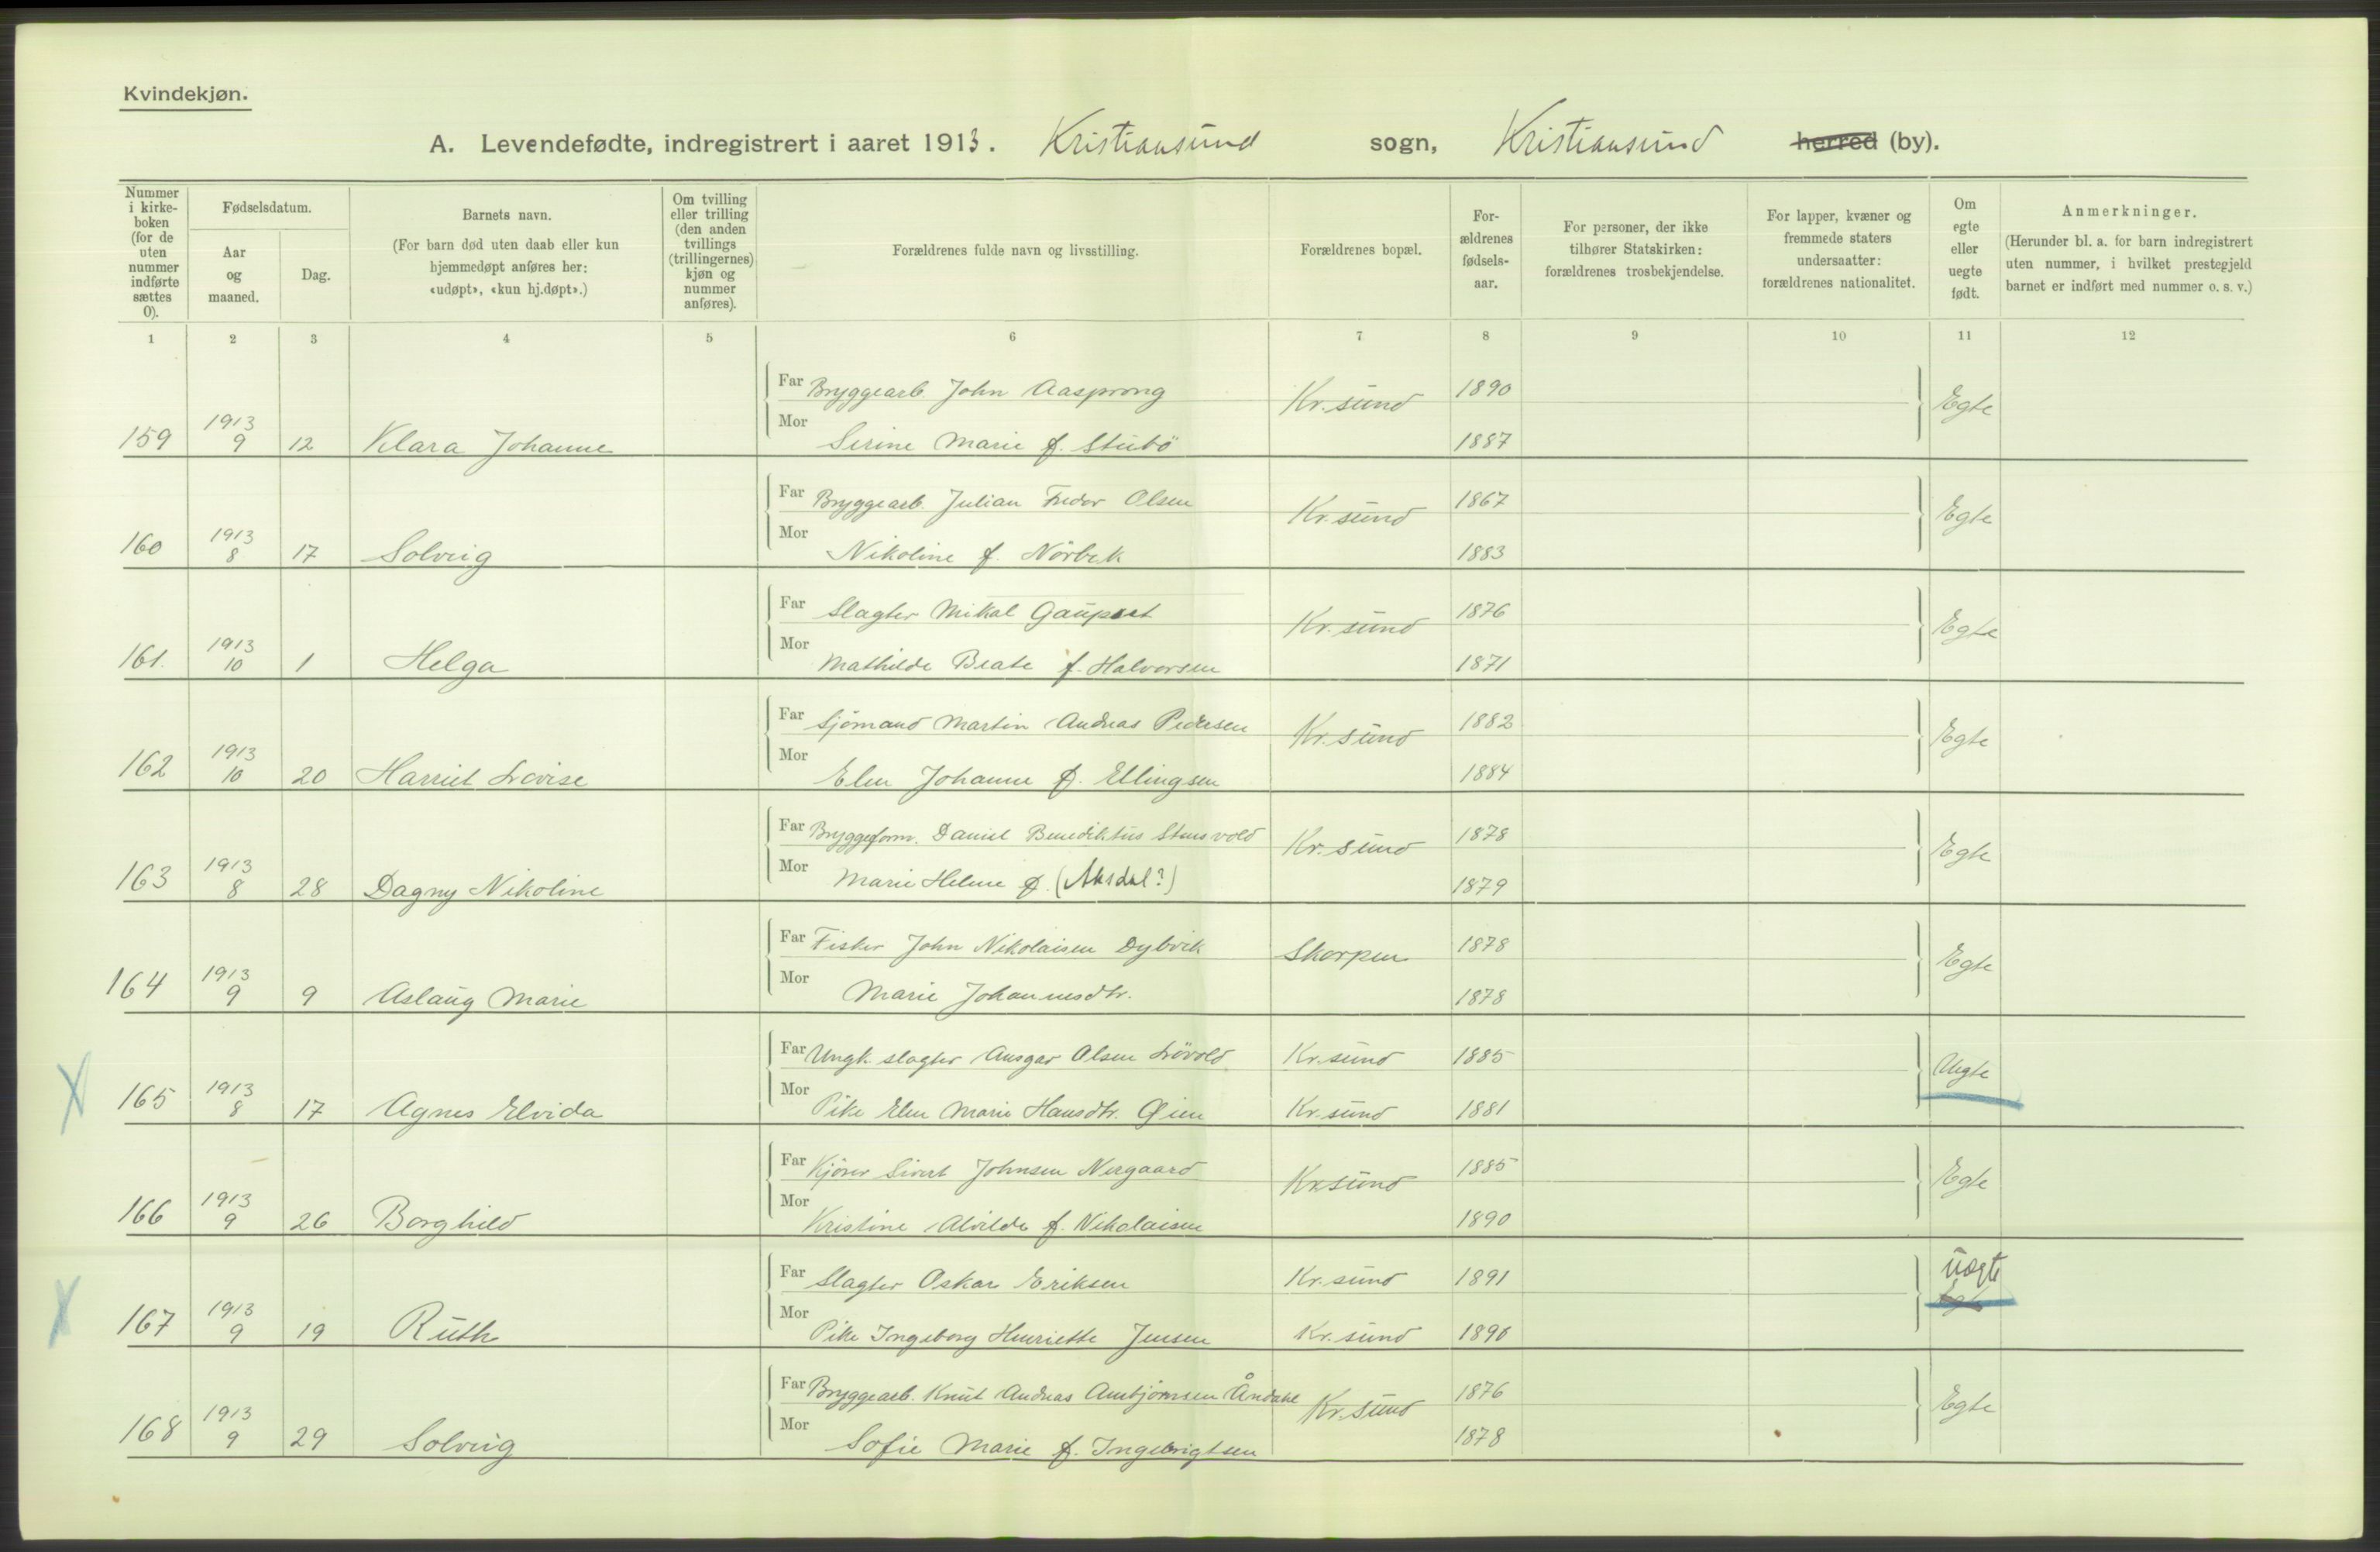 Kvindekjøn.
A. Levendefødte, indregistrert i aaret 1913. Kristiansund sogn, Kristiansund herred (by).
Nummer i kirke-boken (for de uten nummer indførte sættes 0).
Fødselsdatum.
Aar og maaned.
Dag.
Barnets navn.
(For barn død uten daab eller kun hjemmedøpt anføres her: «udøpt», «kun hj.døpt».)
Om tvilling eller trilling (den anden tvillings (trillingernes) kjøn og nummer anføres).
Forældrenes fulde navn og livsstilling.
Forældrenes bopæl.
For-ældrenes fødsels-aar.
For personer, der ikke tilhører Statskirken: forældrenes trosbekjendelse.
For lapper, kvæner og fremmede staters undersaatter: forældrenes nationalitet.
Om egte eller uegte født.
Anmerkninger.
(Herunder bl. a. for barn indregistrert uten nummer, i hvilket prestegjeld barnet er indført med nummer o. s. v.)
1 2 3 4 5 6 7 8 9 10 11 12
Far Bryggearb. John Aasprong Kr.sund 1890 Egte
159 1913 9 12 Klara Johanne
Mor Serine Marie f. Stubö 1887
Far Bryggearb. Julian Fredor Olsen Kr.sund 1867 Egte
160 1913 8 17 Solveig
Mor Nikoline f. Nörbek 1883
Far Slagter Mikal Gaupset Kr.sund 1876 Egte
161. 1913 10 1 Helga
Mor Mathilde Beate f. Halvorsen 1871
Far Sjömand Martin Andreas Pedersen Kr.sund 1882 Egte
162 1913 10 20 Harriet Lovise
Mor Elen Johanne f. Ellingsen 1884
Far Bryggeform. Daniel Benediktus Stensvold Kr.sund 1878 Egte
163 1913 8 28 Dagny Nikoline
Mor Marie Helene f. (Aksdal?) 1879
Far Fisker John Nikolaisen Dybvik Skorpen 1878 Egte
164 1913 9 9 Aslaug Marie
Mor Marie Johannesdtr. 1878
Far Ungk. slagter Ansgar Olsen Lövold Kr.sund 1885 Uegte
165 1913 8 17 Agnes Elvida
Mor Pike Elen Marie Hansdtr. Øien Kr.sund 1881
Far Kjörer Sivert Johnsen Nergaard Kr.sund 1885 Egte
166 1913 9 26 Borghild
Mor Kristine Alvilde f. Nikolaisen 1890
Far Slagter Oskar Eriksen Kr.sund 1891 uegte Egte
167 1913 9 19 Ruth
Mor Pike Ingeborg Henriette Jensen Kr.sund 1890
Far Bryggearb. Knut Andreas Arnbjörnsen Åndahl Kr.sund 1876 Egte
168 1913 9 29 Solveig
Mor Sofie Marie f. Ingebrigtsen 1878